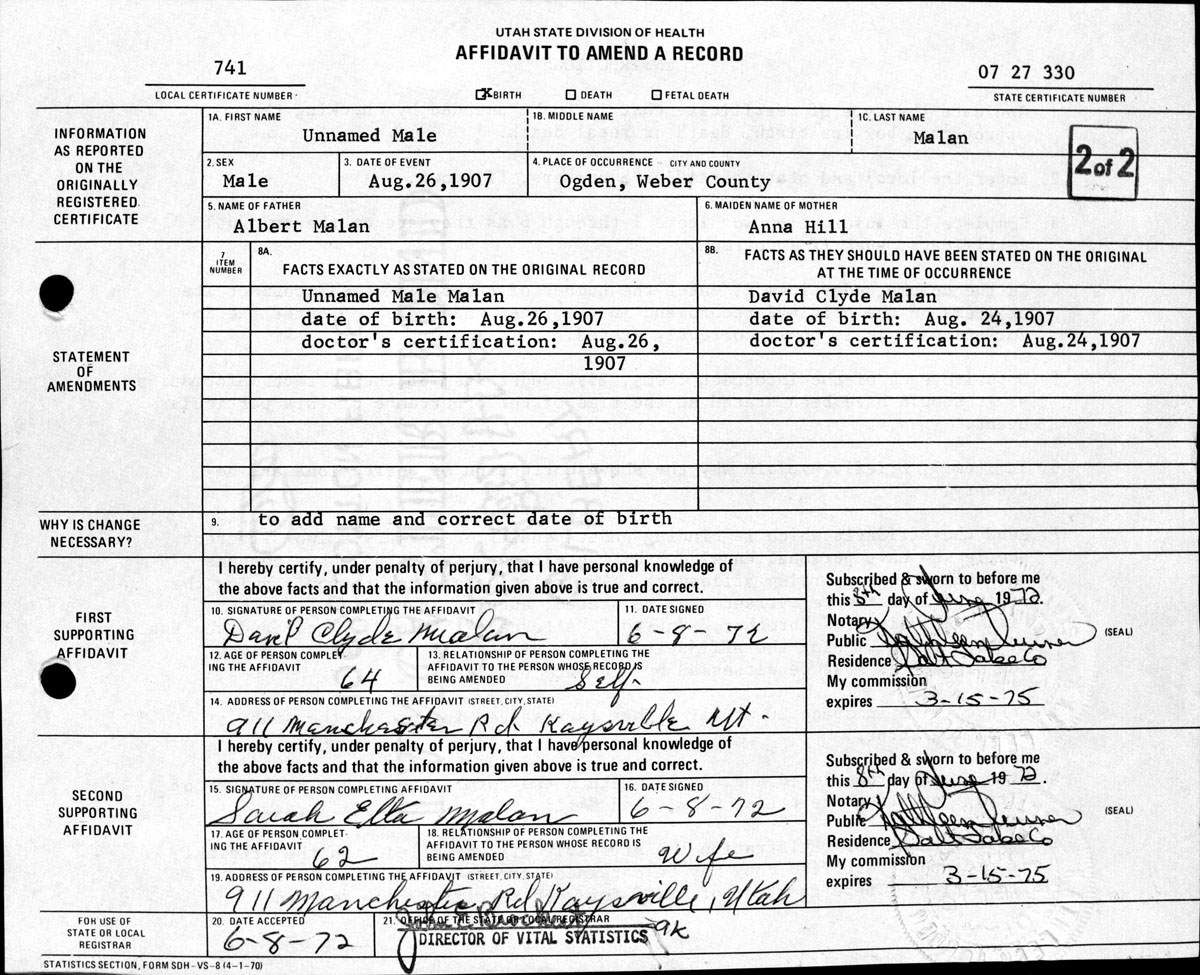 UTAH STATE DIVISION OF HEALTH
AFFIDAVIT TO AMEND A RECORD
741
LOCAL CERTIFICATE NUMBER
X BIRTH DEATH FETAL DEATH
07 27 330
STATE CERTIFICATE NUMBER
INFORMATION
AS REPORTED
ON THE
ORIGINALLY
REGISTERED
CERTIFICATE
1A. FIRST NAME
Unnamed Male
1B. MIDDLE NAME
1C. LAST NAME
Malan
2 of 2
2. SEX
Male
3. DATE OF EVENT
Aug.26,1907
4. PLACE OF OCCURRENCE - CITY AND COUNTY
Ogden, Weber County
5. NAME OF FATHER
Albert Malan
6. MAIDEN NAME OF MOTHER
Anna Hill
STATEMENT
OF
AMENDMENTS
7
ITEM
NUMBER
8A.
FACTS EXACTLY AS STATED ON THE ORIGINAL RECORD
8B.
FACTS AS THEY SHOULD HAVE BEEN STATED ON THE ORIGINAL
AT THE TIME OF OCCURRENCE
Unnamed Male Malan
David Clyde Malan
date of birth: Aug.26,1907
date of birth: Aug. 24,1907
doctor's certification: Aug.26,
1907
doctor's certification: Aug.24,1907
WHY IS CHANGE
NECESSARY?
9. to add name and correct date of birth
FIRST
SUPPORTING
AFFIDAVIT
I hereby certify, under penalty of perjury, that I have personal knowledge of
the above facts and that the information given above is true and correct.
10. SIGNATURE OF PERSON COMPLETING THE AFFIDAVIT
David Clyde Malan
11. DATE SIGNED
6-8-72
12. AGE OF PERSON COMPLET-
ING THE AFFIDAVIT
64
13. RELATIONSHIP OF PERSON COMPLETING THE
AFFIDAVIT TO THE PERSON WHOSE RECORD IS
BEING AMENDED
Self
14. ADDRESS OF PERSON COMPLETING THE AFFIDAVIT (STREET, CITY, STATE)
911 Manchester Rd Kaysville Ut.
Subscribed & sworn to before me
this 8th day of June 1972.
Notary
Public
(SEAL)
Residence Salt Lake Co
My commission
expires 3-15-75
SECOND
SUPPORTING
AFFIDAVIT
I hereby certify, under penalty of perjury, that I have personal knowledge of
the above facts and that the information given above is true and correct.
15. SIGNATURE OF PERSON COMPLETING AFFIDAVIT
Sarah Etta Malan
16. DATE SIGNED
6-8-72
17. AGE OF PERSON COMPLET-
ING THE AFFIDAVIT
62
18. RELATIONSHIP OF PERSON COMPLETING THE
AFFIDAVIT TO THE PERSON WHOSE RECORD IS
BEING AMENDED
Wife
19. ADDRESS OF PERSON COMPLETING THE AFFIDAVIT (STREET, CITY, STATE)
911 Manchester Rd Kaysville, Utah
Subscribed & sworn to before me
this 8th day of June 1972.
Notary
Public
(SEAL)
Residence Salt Lake Co
My commission
expires 3-15-75
FOR USE OF
STATE OR LOCAL
REGISTRAR
20. DATE ACCEPTED
6-8-72
21. OFFICE OF THE STATE OR LOCAL REGISTRAR
DIRECTOR OF VITAL STATISTICS
STATISTICS SECTION, FORM SDH-VS-8 (4-1-70)